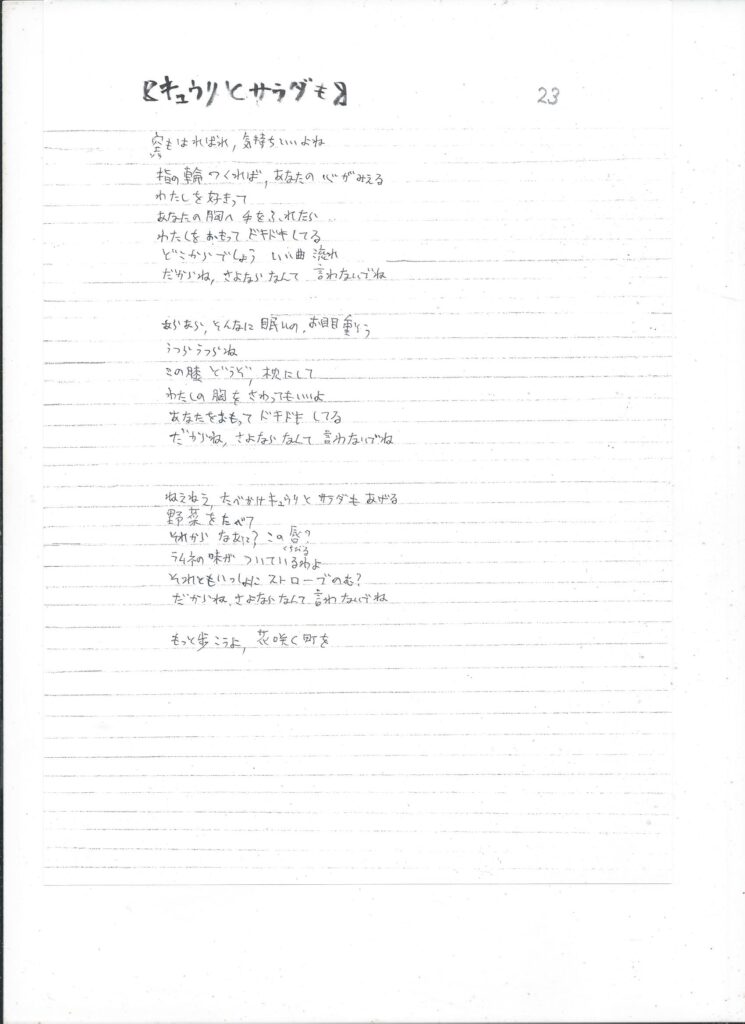 【キュウリとサラダも】
23
空もはればれ, 気持ちいいよね
そら
指の輪つくれば, あなたの心がみえる
わたしを好きって
あなたの胸へ手をふれたら
わたしをおもってドキドキしてる
どこからでしょう いい曲流れ
だからね, さよならなんて 言わないでね
あらあら, そんなに眠いの, お目目重そう
うつらうつらね
この膝どうぞ, 枕にして
わたしの胸をさわってもいいよ
あなたをおもってドキドキしてる
だからね, さよならなんて 言わないでね
ねえねえ, たべかけキュウリとサラダもあげる
野菜をたべて
それからなあに? この唇の
くちびる
ラムネの味がついているわよ
それともいっしょにストローでのむ?
だからね, さよならなんて 言わないでね
もっと歩こうよ, 花咲く町を